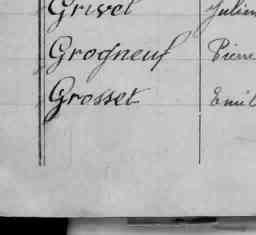 Grivel Julien
Grogneuf Pierre
Grosset Emil